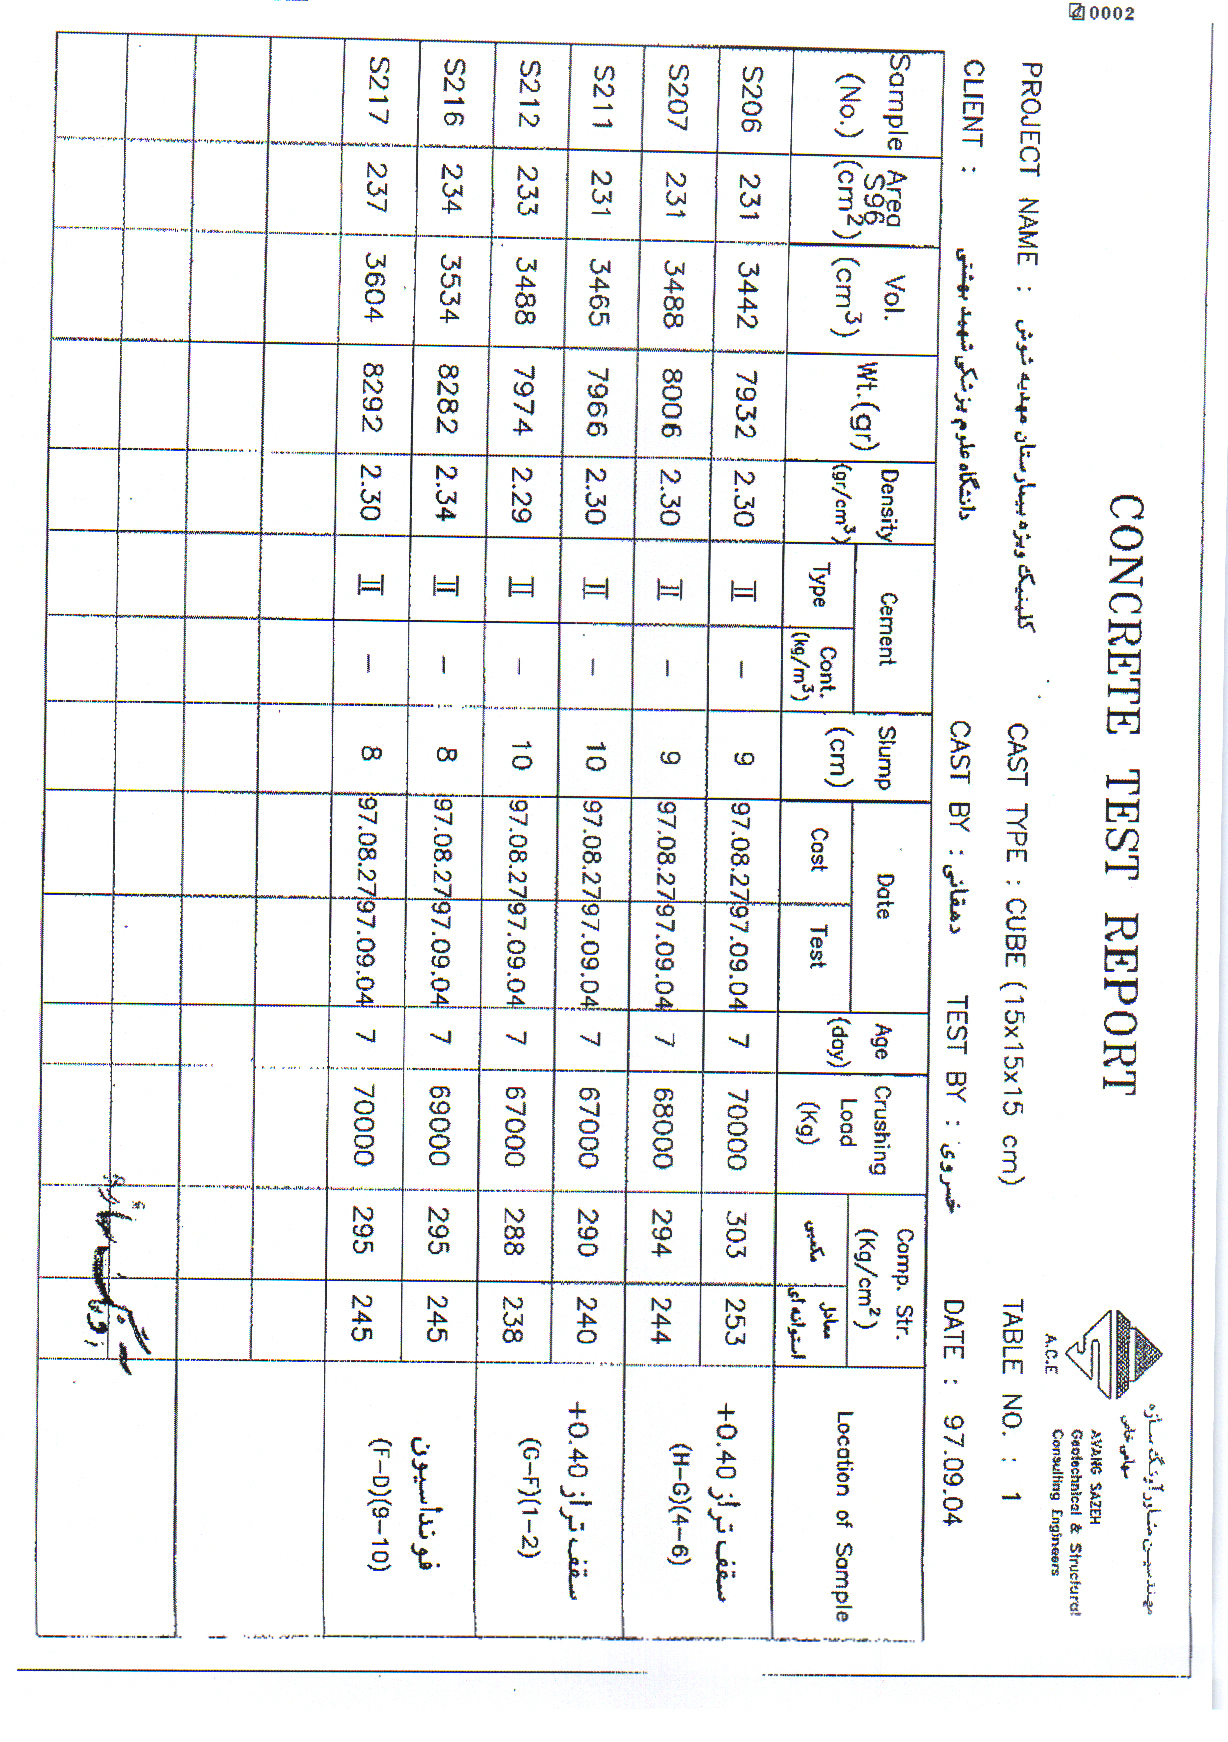 0002
CONCRETE TEST REPORT
مهندسین مشاور آونگ سازه
سهامی خاص
AVANG SAZEH
Geotechnical & Structural
Consulting Engineers
A.C.E
PROJECT NAME : کلینیک ویژه بیمارستان مهدیه شوش CAST TYPE : CUBE (15x15x15 cm) TABLE NO. : 1
CLIENT : دانشگاه علوم پزشکی شهید بهشتی CAST BY : دهقانی TEST BY : خسروی DATE : 97.09.04
Sample (No.) Area S96 (cm2) Vol. (cm3) Wt.(gr) Density (gr/cm3) Cement Type Cont. (kg/m3) Slump (cm) Date Cast Test Age (day) Crushing Load (Kg) Comp. Str. (Kg/cm2) مکعبی معادل استوانه ای Location of Sample
S206 231 3442 7932 2.30 II - 9 97.08.27 97.09.04 7 70000 303 253 سقف تراز +0.40
S207 231 3488 8006 2.30 II - 9 97.08.27 97.09.04 7 68000 294 244 (H-G)(4-6)
S211 231 3465 7966 2.30 II - 10 97.08.27 97.09.04 7 67000 290 240 سقف تراز +0.40
S212 233 3488 7974 2.29 II - 10 97.08.27 97.09.04 7 67000 288 238 (G-F)(1-2)
S216 234 3534 8282 2.34 II - 8 97.08.27 97.09.04 7 69000 295 245 فونداسیون
S217 237 3604 8292 2.30 II - 8 97.08.27 97.09.04 7 70000 295 245 (F-D)(9-10)